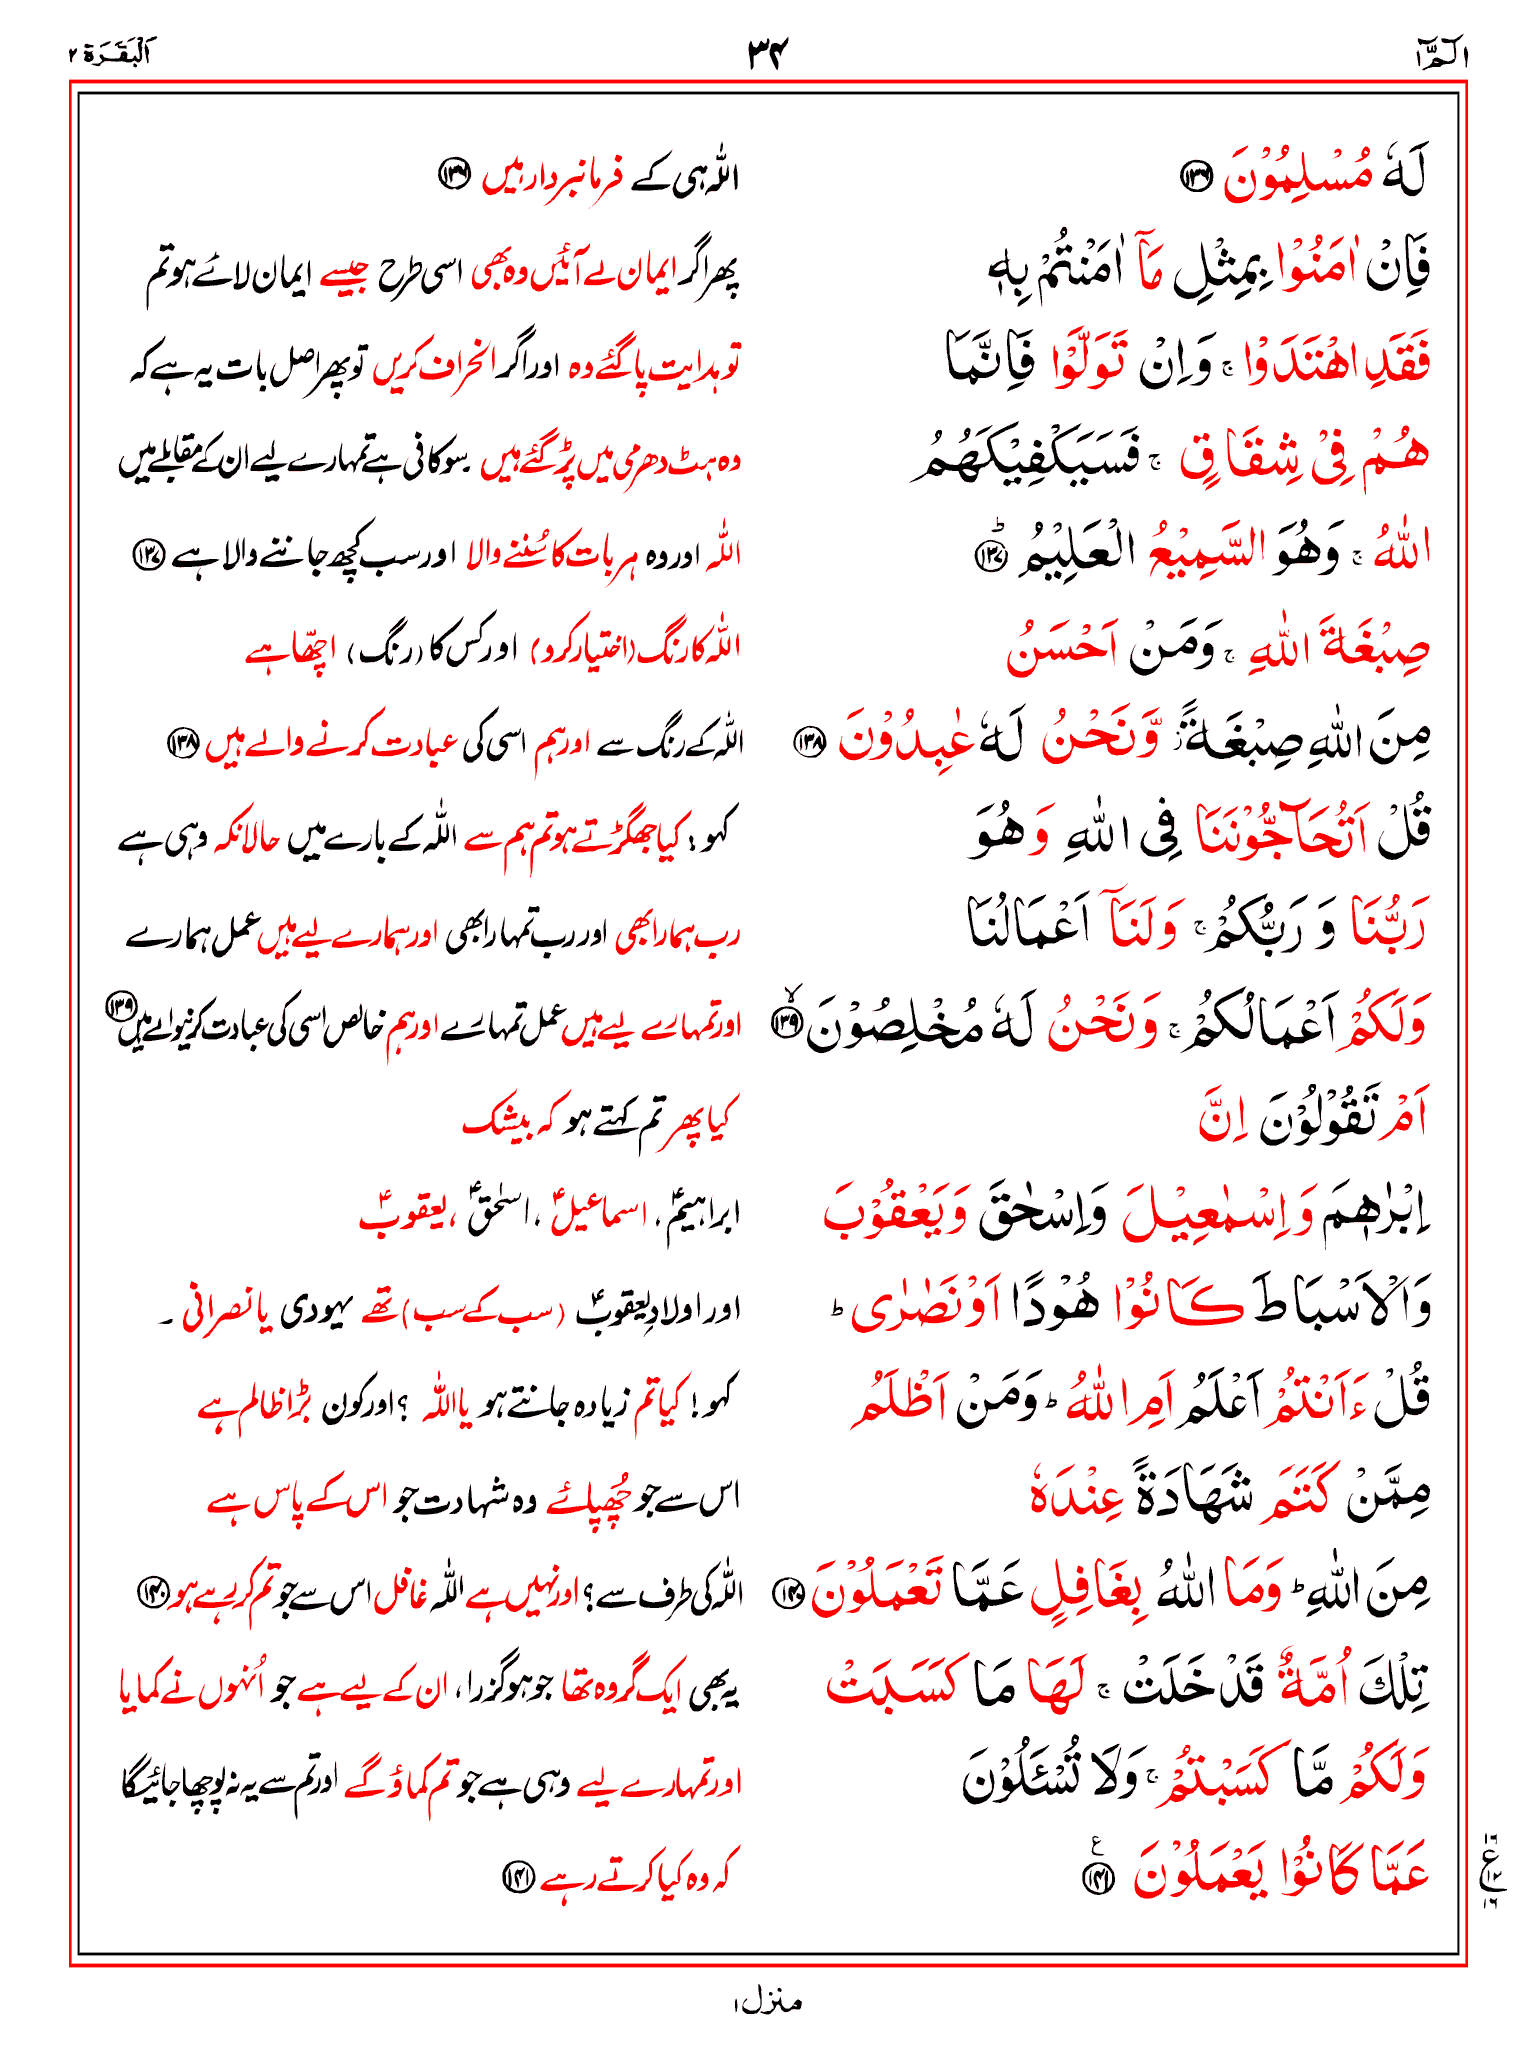 الٓمّٓ ١ ٣٤ اَلْبَقَرَة ٢
لَهٗ مُسْلِمُوْنَ ۝۱۳۶ اللہ ہی کے فرمانبردار ہیں ۝۱۳۶
فَاِنْ اٰمَنُوْا بِمِثْلِ مَاۤ اٰمَنْتُمْ بِهٖ پھر اگر ایمان لے آئیں وہ بھی اسی طرح جیسے ایمان لائے ہو تم
فَقَدِ اهْتَدَوْا ۚ وَاِنْ تَوَلَّوْا فَاِنَّمَا تو ہدایت پا گئے وہ اور اگر انحراف کریں تو پھر اصل بات یہ ہے کہ
هُمْ فِیْ شِقَاقٍ ۚ فَسَیَكْفِیْكَهُمُ وہ ہٹ دھرمی میں پڑ گئے ہیں سو کافی ہے تمہارے لیے ان کے مقابلے میں
اللّٰهُ ۚ وَهُوَ السَّمِیْعُ الْعَلِیْمُ ؕ۝۱۳۷ اللہ اور وہ ہر بات کا سُننے والا اور سب کچھ جاننے والا ہے ۝۱۳۷
صِبْغَةَ اللّٰهِ ۚ وَمَنْ اَحْسَنُ اللہ کا رنگ (اختیار کرو) اور کس کا (رنگ) اچھّا ہے
مِنَ اللّٰهِ صِبْغَةً ؗ وَّنَحْنُ لَهٗ عٰبِدُوْنَ ۝۱۳۸ اللہ کے رنگ سے اور ہم اسی کی عبادت کرنے والے ہیں ۝۱۳۸
قُلْ اَتُحَآجُّوْنَنَا فِی اللّٰهِ وَهُوَ کہو: کیا جھگڑتے ہو تم ہم سے اللہ کے بارے میں حالانکہ وہی ہے
رَبُّنَا وَ رَبُّكُمْ ۚ وَلَنَاۤ اَعْمَالُنَا رب ہمارا بھی اور رب تمہارا بھی اور ہمارے لیے ہیں عمل ہمارے
وَلَكُمْ اَعْمَالُكُمْ ۚ وَنَحْنُ لَهٗ مُخْلِصُوْنَ ۙ۝۱۳۹ اور تمہارے لیے ہیں عمل تمہارے اور ہم خالص اسی کی عبادت کرنیوالے ہیں ۝۱۳۹
اَمْ تَقُوْلُوْنَ اِنَّ کیا پھر تم کہتے ہو کہ بیشک
اِبْرٰهٖمَ وَ اِسْمٰعِیْلَ وَاِسْحٰقَ وَیَعْقُوْبَ ابراہیمؑ، اسماعیلؑ، اسحٰقؑ، یعقوبؑ
وَالْاَسْبَاطَ كَانُوْا هُوْدًا اَوْ نَصٰرٰی ؕ اور اولادِ یعقوبؑ (سب کے سب) تھے یہودی یا نصرانی ۔
قُلْ ءَاَنْتُمْ اَعْلَمُ اَمِ اللّٰهُ ؕ وَمَنْ اَظْلَمُ کہو! کیا تم زیادہ جانتے ہو یا اللہ ؟ اور کون بڑا ظالم ہے
مِمَّنْ كَتَمَ شَهَادَةً عِنْدَهٗ اس سے جو چُھپائے وہ شہادت جو اس کے پاس ہے
مِنَ اللّٰهِ ؕ وَمَا اللّٰهُ بِغَافِلٍ عَمَّا تَعْمَلُوْنَ ۝۱۴۰ اللہ کی طرف سے؟ اور نہیں ہے اللہ غافل اس سے جو تم کر رہے ہو ۝۱۴۰
تِلْكَ اُمَّةٌ قَدْ خَلَتْ ۚ لَهَا مَا كَسَبَتْ یہ بھی ایک گروہ تھا جو ہو گزرا، ان کے لیے ہے جو اُنہوں نے کمایا
وَلَكُمْ مَّا كَسَبْتُمْ ۚ وَلَا تُسْـَٔلُوْنَ اور تمہارے لیے وہی ہے جو تم کماؤ گے اور تم سے یہ نہ پوچھا جائیگا
عَمَّا كَانُوْا یَعْمَلُوْنَ ۝۱۴۱ ع کہ وہ کیا کرتے رہے ۝۱۴۱
١٦ ع ١٢ ١٦
منزل ۱